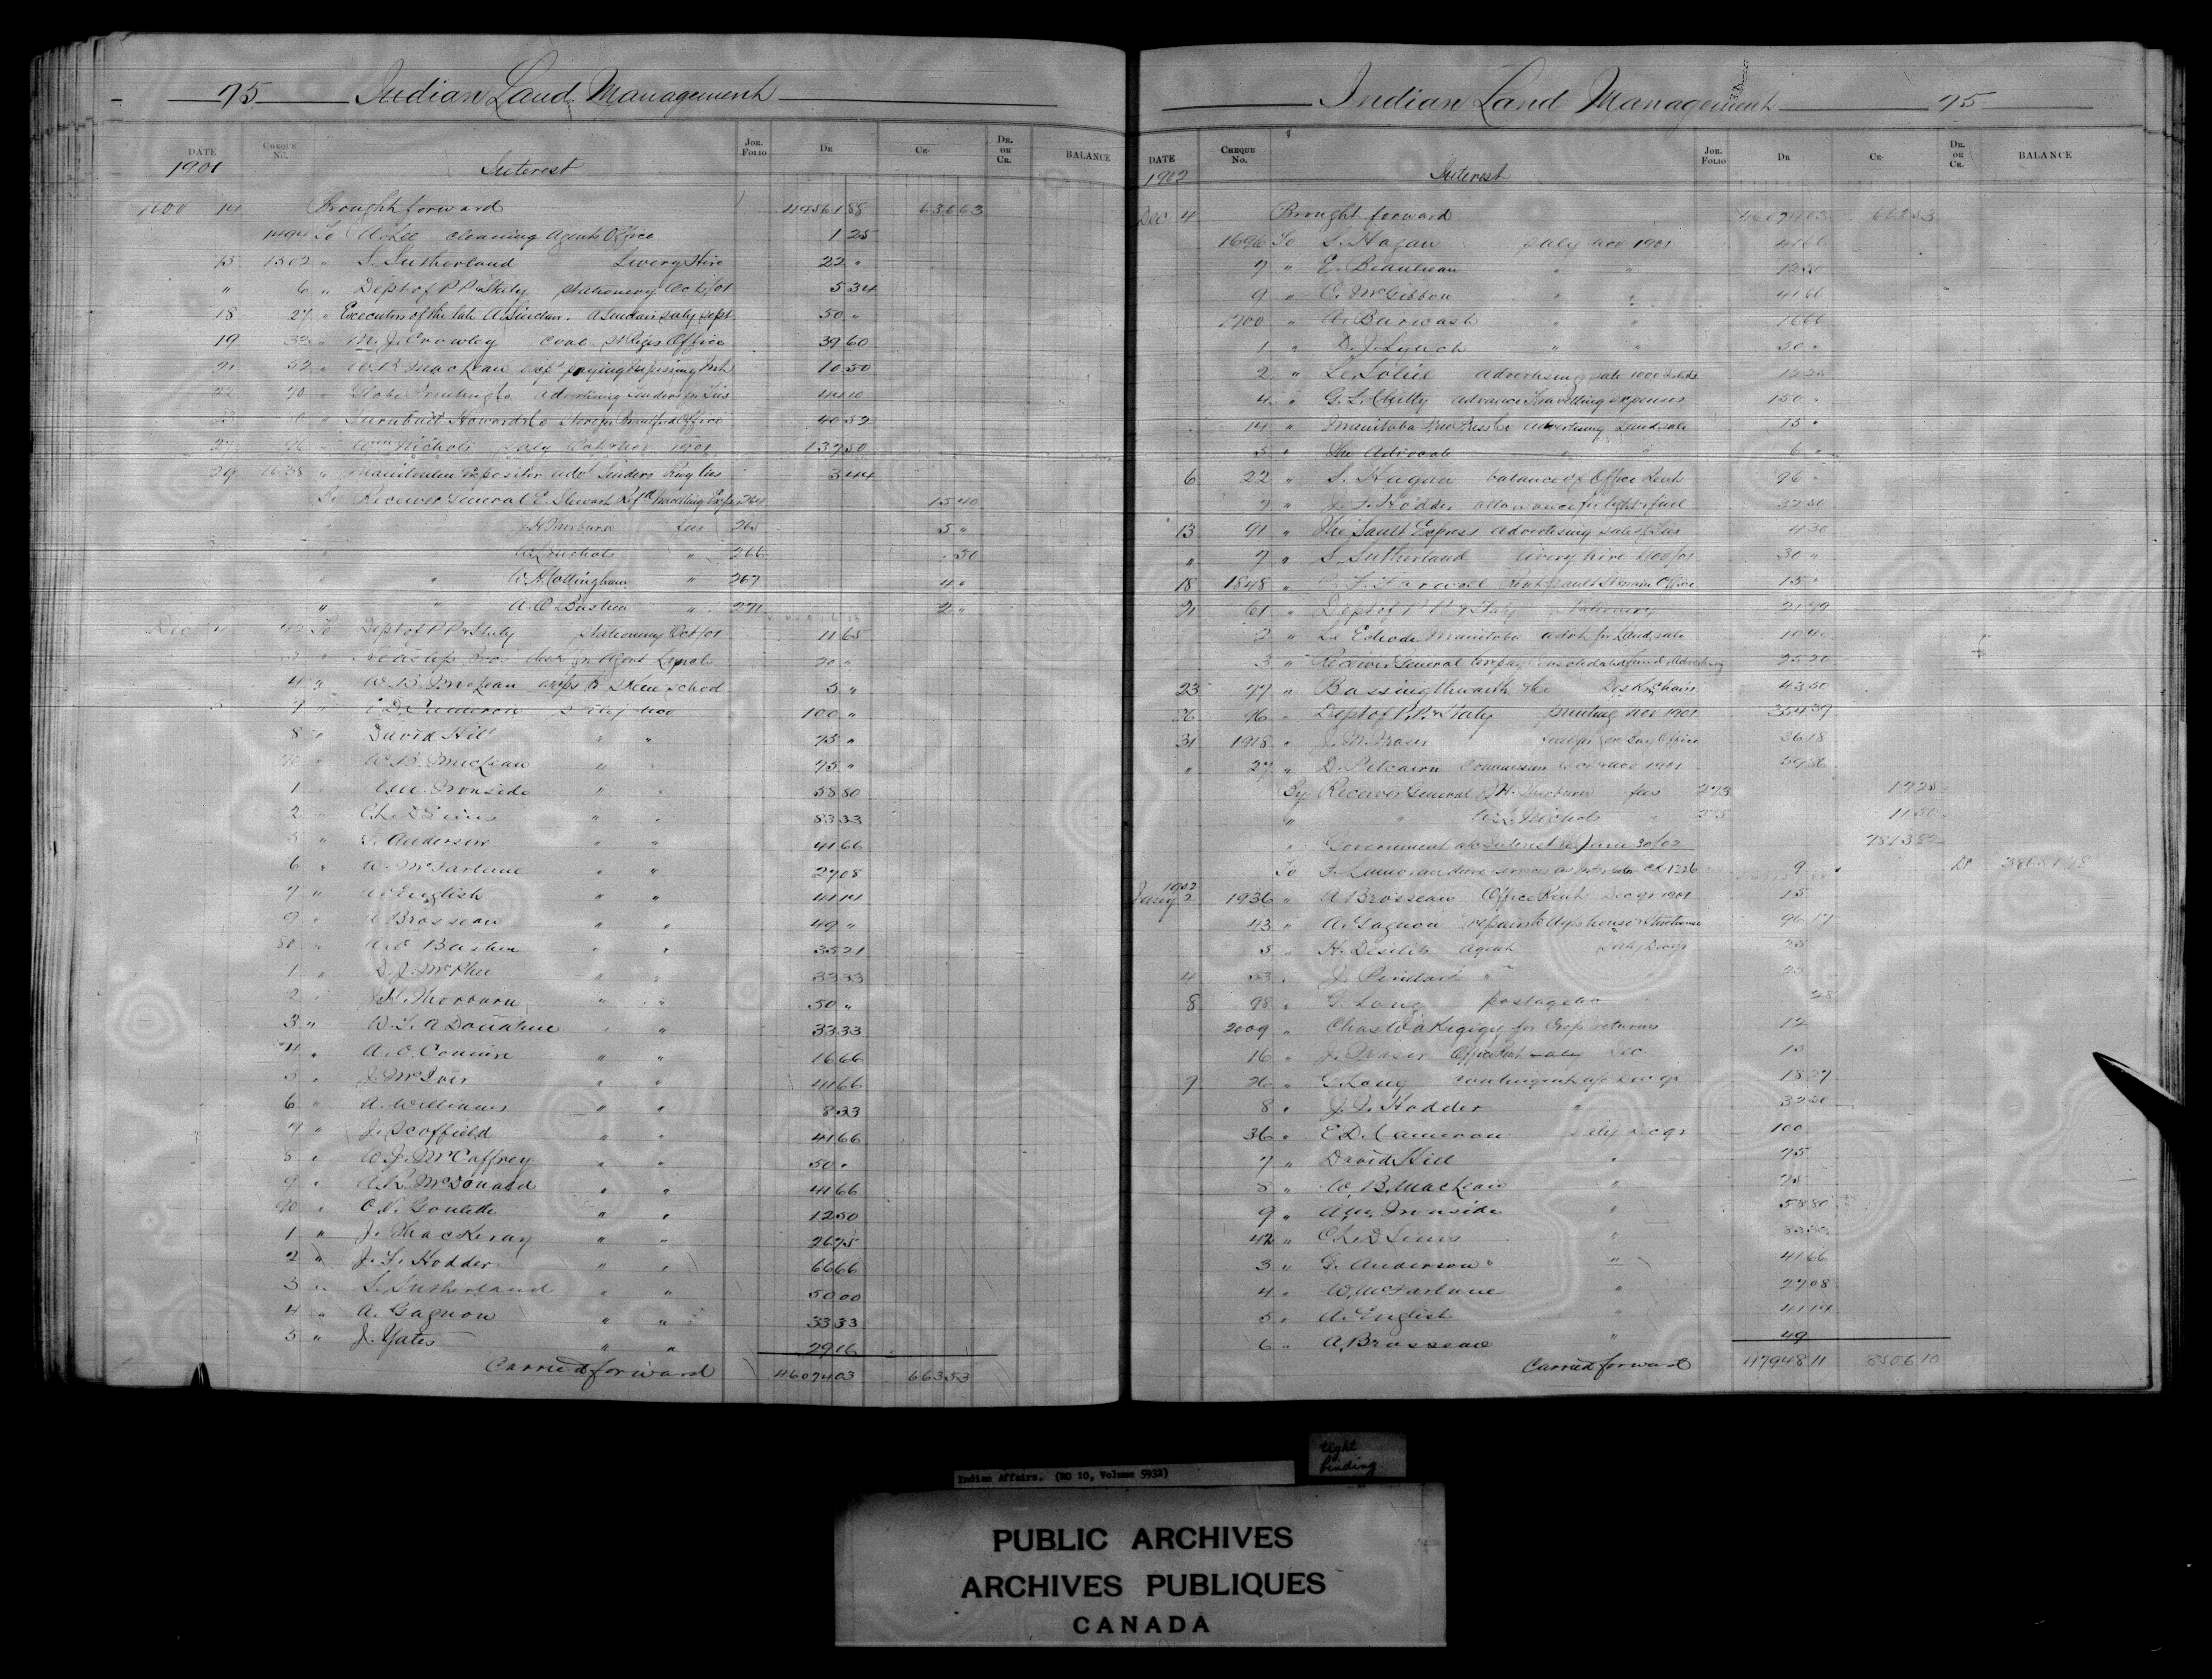 75 Indian Land Management
DATE Cheque No. Jor. Folio Dr Cr. Dr. or Cr. BALANCE
1901 Interest
14 Brought forward 44561 88 636 63
1494 To A. Lee cleaning Agents Office 1 25
15 1502 " S. Sutherland Livery Hire 22 "
" 6 " Dept of P P & Staty stationery Oct/01 5 34
18 27 " Executors of the late A. Sinclair. A Sinclair saly sept 50 "
19 32 " M. J. Crowley coal St Regis Office 39 60
21 52 " W. B. MacLean exps paying 10 50
22 70 " Globe Printing Co Advertising Tenders for 44 10
23 80 " Howard & Co Brantford Office 40 52
27 96 " Wm Nichols saly Oct & Nov 1901 137 50
29 1638 " Manitoulin Expositor advt Tenders 3 44
By Receiver General E. Stewart Ref'd travelling Exps 264 15 40
" " J. H. Thorburn fees 265 5 "
" " W. L. Nichols " 266 . 50
" " W. H. Cottingham " 267 4 "
" " A. O. Bastien " 271 2 "
Dec 4 To Dept of P P & Staty stationery Oct/01 11 65
" desk for Agent Lynch 20 "
4 " W. B. McLean exps to school 5 "
7 " E. D. Cameron saly Nov 100 "
8 " David Hill " " 75 "
70 " W. B. McLean " " 75 "
1 " A. M. Ironside " " 58 80
2 " Ch. D Sims " " 83 33
3 " G. Anderson " " 41 66
6 " W. McFarlane " " 27 08
7 " A. English " " 41 14
9 " A Brosseau " " 49 "
80 " A. O Bastien " " 35 21
1 " D. J. McPhee " " 33 33
2 " J. H. Thorburn " " 50 "
3 " W. L. A Donahue " " 33 33
4 " A. O. Comire " " 16 66
5 " J. McIver " " 41 66
6 " A. Williams " " 8 33
7 " J. Scoffield " " 41 66
8 " W. J. McCaffrey " " 50 "
9 " A. R. McDonald " " 41 66
90 " O. V. Goulette " " 12 50
1 " J. Thackeray " " 26 75
2 " J. F. Hodder " " 66 66
3 " S. Sutherland " " 50 00
4 " A. Gagnon " " 33 33
5 " J. Yates " " 29 16
Carried forward 46074 03 663 53
Indian Land Management 75
DATE Cheque No. Jor. Folio Dr Cr. Dr. or Cr. BALANCE
1902 Interest
Dec 4 Brought forward 46074 03 663 53
1696 To S. Hagan saly Nov 1901 41 66
7 " E. Beaulieau " " 12 50
9 " C. McGibbon " " 41 66
1700 " A. Burwash " " 16 66
1 " D. J. Lynch " " 50 "
2 " Le Soleil Advertising sale 12 25
4 " G. L. Chitty advance travelling expenses 150 "
14 " Manitoba Free Press Co advertising Land sale 15 "
5 " The Advocate " " 6 "
6 22 " S. Hagan balance of Office Rent 96 "
7 " J. F. Hodder allowance for light & fuel 32 50
13 91 " The Sault Express advertising sale of 4 30
" 7 " S. Sutherland livery hire Nov/01 30 "
18 1848 " C. F. Farwell Rent Sault St Marie Office 15 "
21 61 " Dept of P P & Staty stationery 21 99
2 " Le Echo de Manitoba advt for Land sale 10 40
3 " Receiver General Consolidated fund Advertising 25 20
23 77 " Bassingthwaith & Co Desk & Chair 43 50
26 96 " Dept of P. P. & Staty printing Nov 1901 354 39
31 1918 " J. M. Fraser fuel for Office 36 18
" 27 " D. Pitcairn commission Oct & Nov 1901 59 86
By Receiver General J. H. Thorburn fees 273 17 25
" " W. L. Nichols " 275 11 50
" Government a/c Interest to June 30/02 7813 82
To services as 9 " Dr
1902
Jany 2 1936 " A Brosseau Office Rent Dec qr 1901 15
43 " A. Gagnon repairs to Agts house & Storehouse 96 17
5 " H. Desilets Agent Saly Dec qr 25
4 53 " J. " 25
8 98 " G. Long postage &c " 25
2009 " Chas Wakegigy for Crop returns 12
16 " J. Fraser Office Rent Dec 15
9 26 " G. Long contingent a/c Dec qr 18 27
8 " J. F. Hodder " 32 50
36 " E. D. Cameron saly Dec qr 100
7 " David Hill " 75
8 " W. B. MacLean " 75
9 " A. M. Ironside " 58 80
42 " Ch. D Sims " 83 33
3 " G. Anderson " 41 66
4 " W. McFarlane " 27 08
5 " A. English " 41 14
6 " A. Brosseau " 49
Carried forward 47948 11 8506 10
tight binding
Indian Affairs. (RG 10, Volume 5932)
PUBLIC ARCHIVES
ARCHIVES PUBLIQUES
CANADA